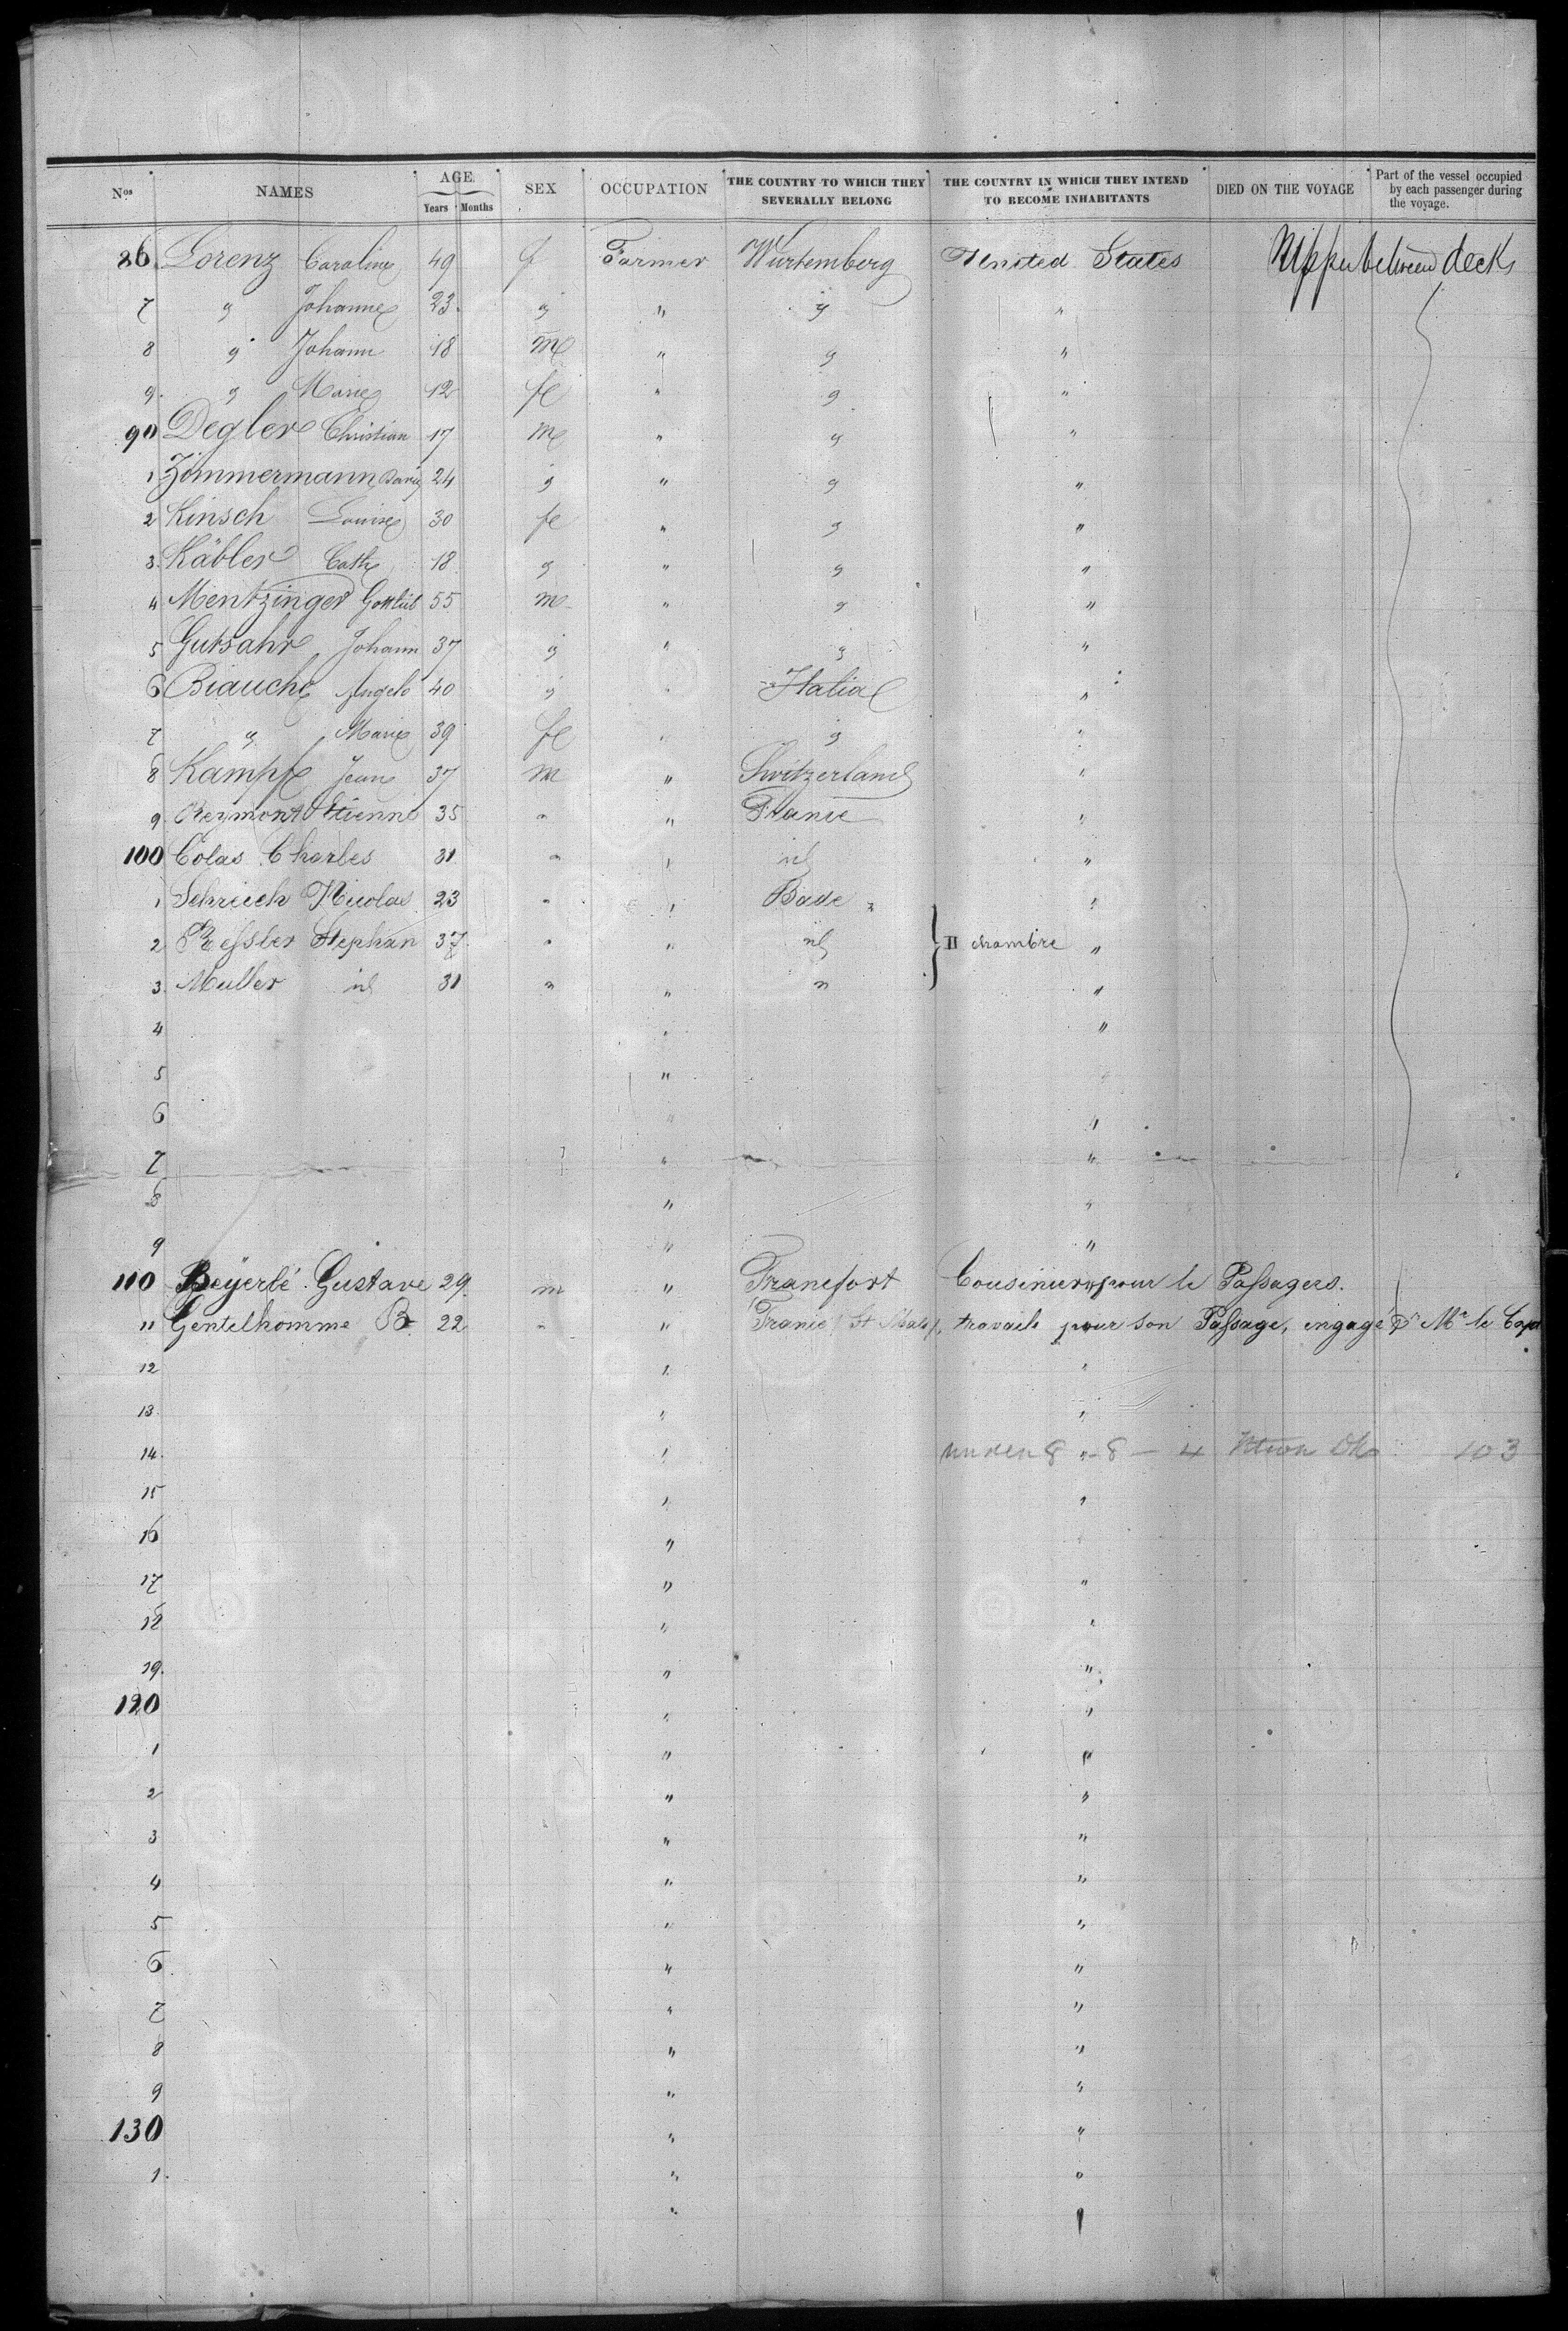 Nos NAMES AGE Years Months SEX OCCUPATION THE COUNTRY TO WHICH THEY SEVERALLY BELONG THE COUNTRY IN WHICH THEY INTEND TO BECOME INHABITANTS DIED ON THE VOYAGE Part of the vessel occupied by each passenger during the voyage.
86 Lorenz Caroline 49 f Farmer Wurtemberg United States Upper between decks
7 " Johanne 23 " " " "
8 " Johann 18 m " " "
9 " Marie 12 fe " " "
90 Degler Christian 17 m " " "
1 Zimmermann 24 " " " "
2 Kinsch Louise 30 fe " " "
3 Käbler Cath 18 " " " "
4 Mentzinger Gottlieb 55 m " " "
5 Gutsahr Johann 37 " " " "
6 Biauche Angelo 40 " " Italia "
7 " Marie 39 fe " " "
8 Kampfe Jean 37 m " Switzerland "
9 Reymont Etienne 35 " " France "
100 Colas Charles 31 " " id "
1 Schreich Nicolas 23 " " Bade "
2 Kessler Stephan 37 " " id II chambre "
3 Muller id 31 " " " "
4 " "
5 "
6 " "
7 " "
8 " "
9 " "
110 Beyerlé Gustave 29 m " Francfort Cousinier pour le Passagers.
11 Gentelhomme B 22 " " France (St Malo), travaile pour son Passage, engagé pr Mr le Cap
12 " "
13 " "
14 " under 8 " 8 — 4 103
15 " "
16 "
17 " "
18 " "
19 " "
120 " "
1 " "
2 " "
3 " "
4 " "
5 " "
6 " "
7 " "
8 " "
9 " "
130 " "
1 " "
" "